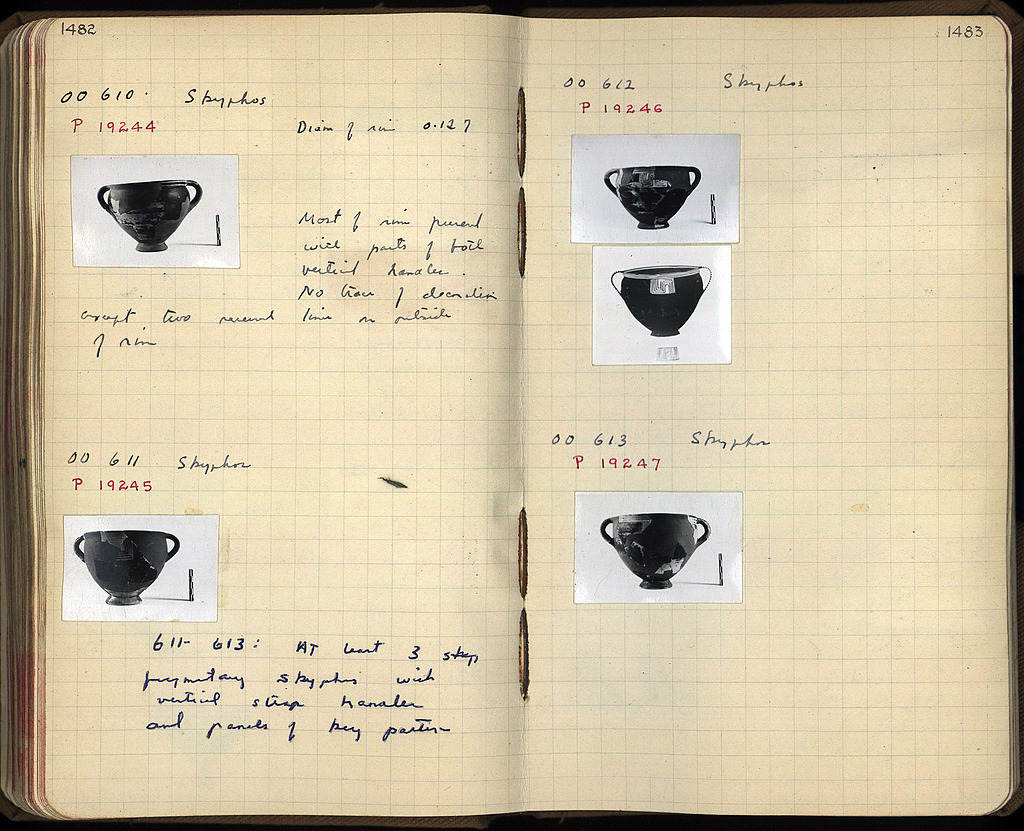 1482
OO 610. Skyphos
P 19244
Diam of rim 0.127
Most of rim preserved
with parts of both
vertical handles.
No trace of decoration
except two reserved lines on outside
of rim
OO 611 Skyphos
P 19245
611-613: At least 3 skyp
fragmentary skyphos with
vertical strap handles
and panels of key pattern
1483
OO 612 Skyphos
P 19246
OO 613 Skyphos
P 19247